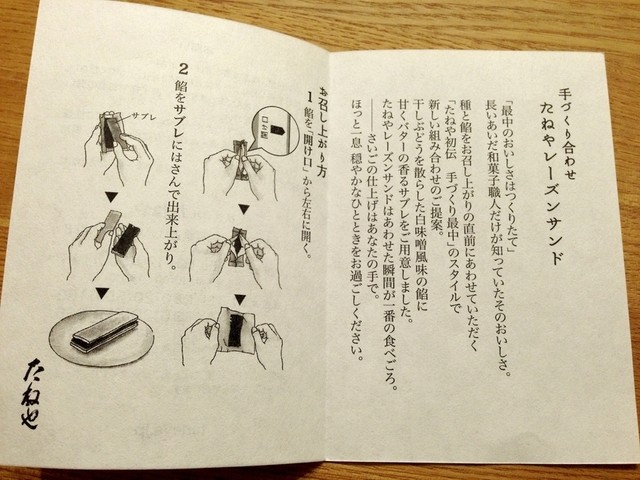 手づくり合わせ
たねやレーズンサンド
「最中のおいしさはつくりたて」
長いあいだ和菓子職人だけが知っていたそのおいしさ。
種と餡をお召し上がりの直前にあわせていただく
「たねや初伝　手づくり最中」のスタイルで
新しい組み合わせのご提案。
干しぶどうを散らした白味噌風味の餡に
甘くバターの香るサブレをご用意しました。
たねやレーズンサンドはあわせた瞬間が一番の食べごろ。
――さいごの仕上げはあなたの手で。
ほっと一息 穏やかなひとときをお過ごしください。
お召し上がり方
1 餡を「開け口」から左右に開く。
開け口
2 餡をサブレにはさんで出来上がり。
サブレ
たねや